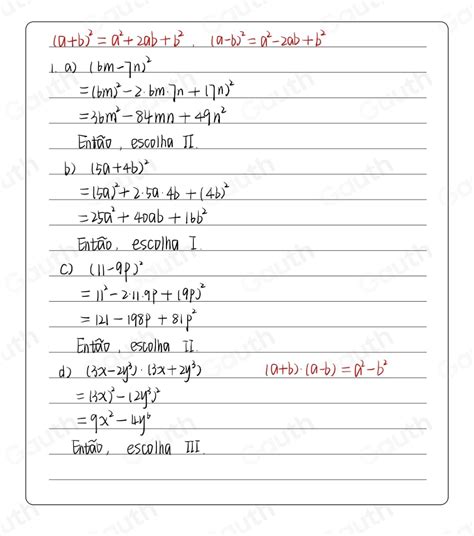 (a+b)² = a²+2ab+b², (a-b)² = a²-2ab+b²
1. a) (6m-7n)²
= (6m)²-2·6m·7n+(7n)²
= 36m²-84mn+49n²
Então, escolha II.
b) (5a+4b)²
= (5a)²+2·5a·4b+(4b)²
= 25a²+40ab+16b²
Então, escolha I.
c) (11-9p)²
= 11²-2·11·9p+(9p)²
= 121-198p+81p²
Então, escolha II.
d) (3x-2y³)·(3x+2y³) (a+b)·(a-b) = a²-b²
= (3x)²-(2y³)²
= 9x²-4y⁶
Então, escolha III.